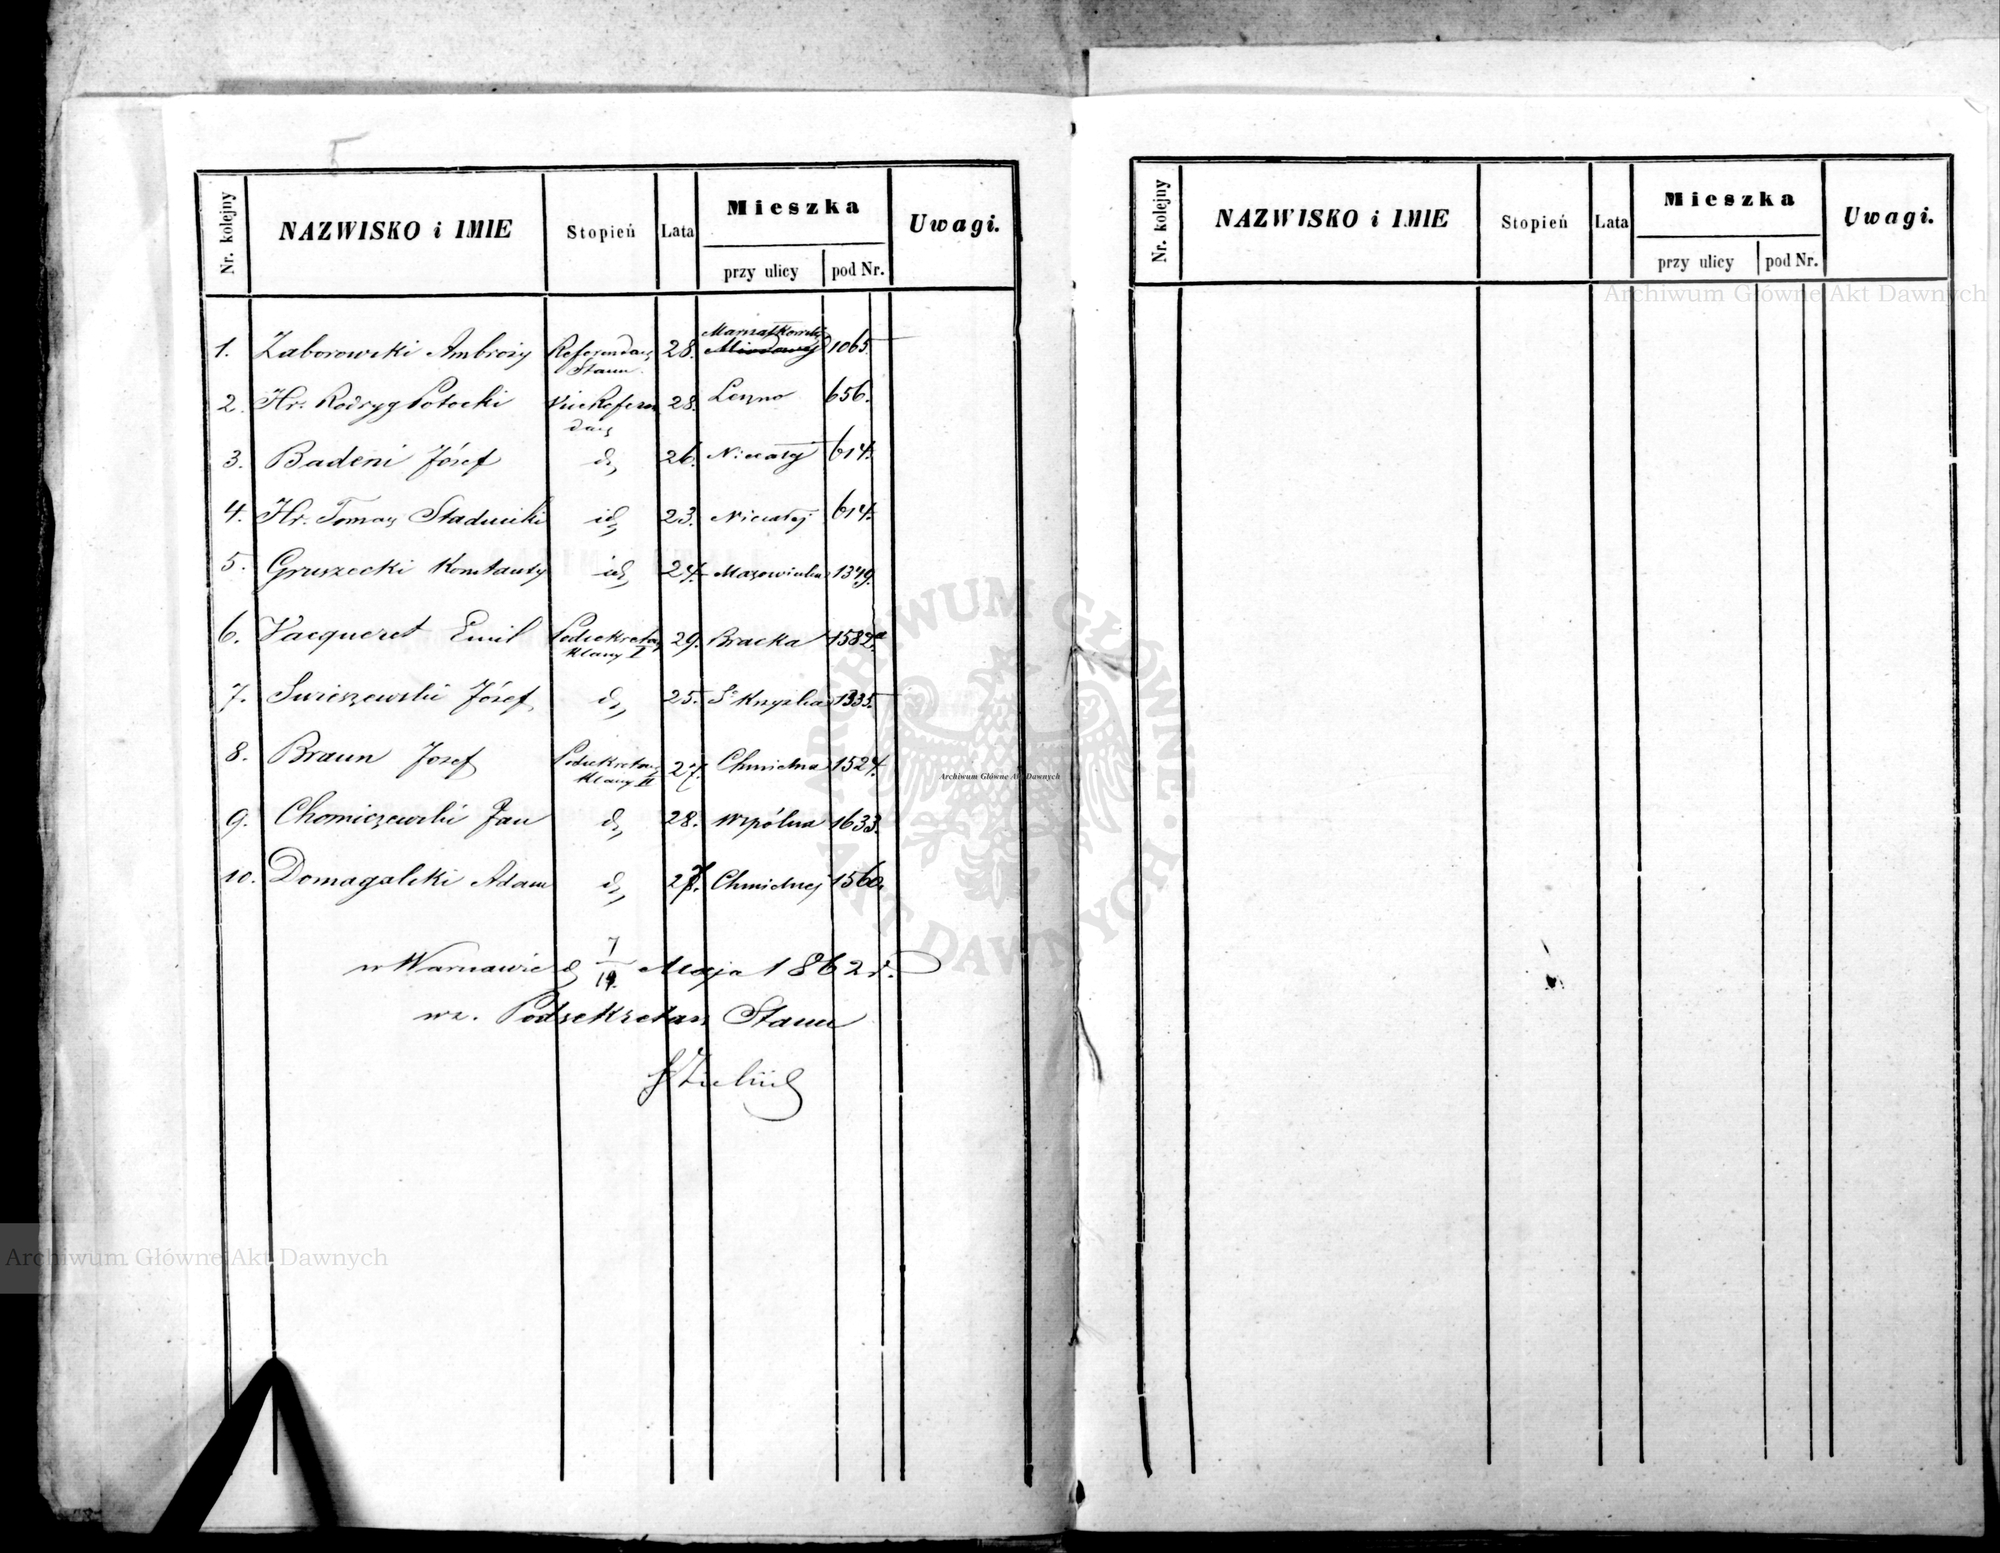 5
Nr. kolejny NAZWISKO i IMIE Stopień Lata Mieszka Uwagi.
przy ulicy pod Nr.
1. Zaborowski Ambroży Referendarz Stanu 28. Marszałkowskiej Miodowej 1065.
2. Hr. Rodryg Potocki Vice Referendarz 28. Leszno 656.
3. Badeni Józef id, 26. Niecałej 614.
4. Hr. Tomasz Stadnicki id, 23. Niecałej 614.
5. Gruszecki Konstanty id, 24. Mazowiecka 1349.
6. Vacqueret Emil Podsekretarz klassy I 29. Bracka 1582a
7. Józef id, 25. Sto Krzyska 1335.
8. Braun Jozef Podsekretarz klassy II 27. Chmielna 1524.
9. Chomiczewski Jan id, 28. Wspólna 1633.
10. Domagalski Adam id, Chmielnej 1560.
w Warszawie d 7/19. Maja 1862 r.
wz. Podsekretarz Stanu
Nr. kolejny NAZWISKO i IMIE Stopień Lata Mieszka Uwagi.
przy ulicy pod Nr.
Archiwum Główne Akt Dawnych
ARCHIWUM GŁÓWNE AKT DAWNYCH
Archiwum Główne Akt Dawnych
Archiwum Główne Akt Dawnych